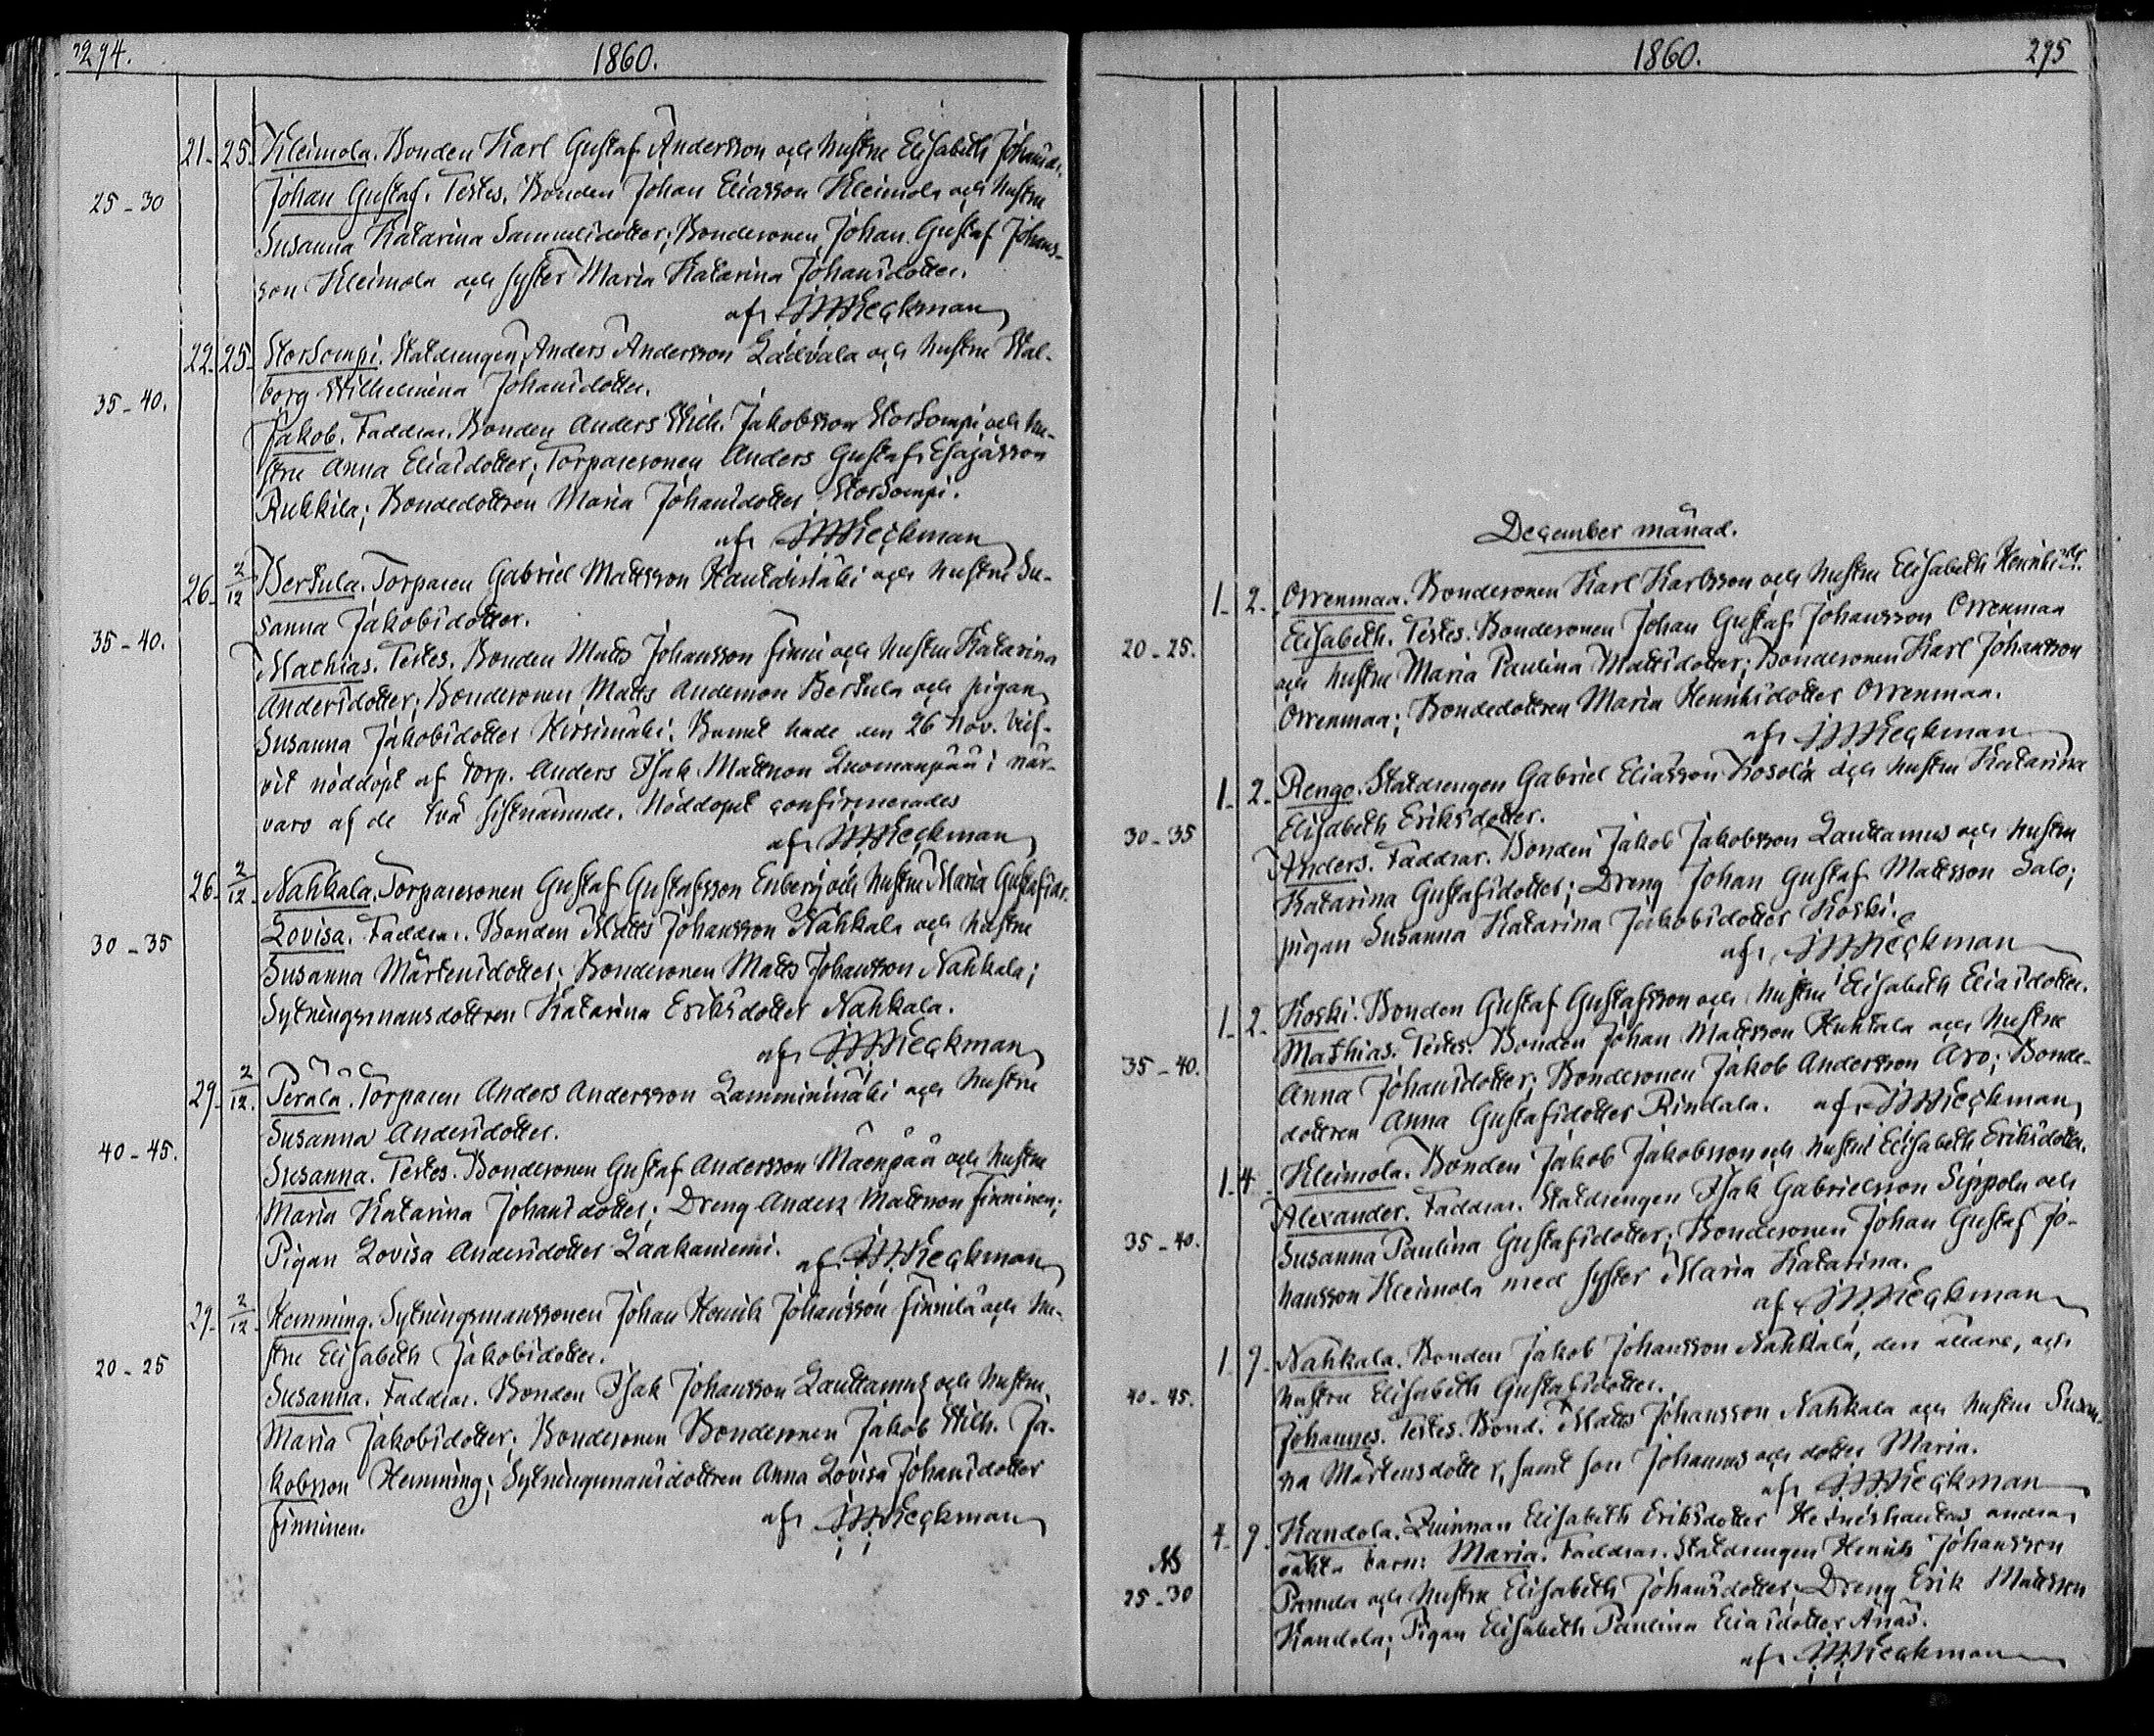 294.
1860.
21. 25. Kleimola. Bonden Karl Gustaf Andersson och hustru Elisabeth Johansd.
25-30 Johan Gustaf. Testes. Bonden Johan Eliasson Kleimola och hustru
Susanna Katarina Samuelsdotter; Bondesonen Johan Gustaf Johans-
son Kleimola och syster Maria Katarina Johansdotter.
af
22. 25. Storsompi. Statdrengen Anders Andersson Ladvala och hustru Wal-
borg Wilhelmina Johansdotter.
35-40. Jakob. Faddrar. Bonden Anders Wilh. Jakobsson Storsompi och hu-
stru Anna Eliasdotter; Torparesonen Anders Gustaf Esajasson
Rukkila; Bondedottren Maria Johansdotter Storsompi.
af
26. 2/12 Bertula. Torparen Gabriel Mattsson Rautamäki och hustru Su-
sanna Jakobsdotter.
35-40. Mathias. Testes. Bonden Matts Johansson Finni och hustru Katarina
Andersdotter; Bondesonen Matts Andersson Bertula och pigan
Susanna Jakobsdotter Hirsimäki. Barnet hade den 26 Nov. blif-
vit nöddöpt af torp. Anders Isak Mattsson Luomanpää i när-
varo af de två sistnämnde. Nöddopet confirmerades
af
26. 2/12 Nahkala. Torparesonen Gustaf Gustafsson Enberg och hustru Maria Gustafsdr.
30-35 Lovisa. Faddrar. Bonden Matts Johansson Nahkala och hustru
Susanna Mårtensdotter; Bondesonen Matts Johansson Nahkala;
Sytningsmansdottren Katarina Eriksdotter Nahkala.
af
29. 2/12. Perälä. Torparen Anders Andersson Lamminmäki och hustru
Susanna Andersdotter.
40-45. Susanna. Testes. Bondesonen Gustaf Andersson Mäenpää och hustru
Maria Katarina Johansdotter; Dreng Anders Mattsson Finninen;
Pigan Lovisa Andersdotter Laakaniemi. af
29. 2/12. Hemming. Sytningsmanssonen Johan Henrik Johansson Finnilä och hu-
stru Elisabeth Jakobsdotter.
20-25 Susanna. Faddrar. Bonden Isak Johansson Lauttamus och hustru
Maria Jakobsdotter; Bondesonen Bondesonen Jakob Wilh. Ja-
kobsson Hemming; Sytningsmansdottren Anna Lovisa Johansdotter
Finninen. af
1860.
295
December månad.
1. 2. Orrenmaa. Bondesonen Karl Karlsson och hustru Elisabeth Henriksdr.
20-25. Elisabeth. Testes. Bondesonen Johan Gustaf Johansson Orrenmaa
och hustru Maria Paulina Mattsdotter; Bondesonen Karl Johansson
Orrenmaa; Bondedottren Maria Henriksdotter Orrenmaa.
af
1. 2. Rengo. Statdrengen Gabriel Eliasson Kosola och hustru Katarina
Elisabeth Eriksdotter.
30-35 Anders. Faddrar. Bonden Jakob Jakobsson Lauttamus och hustru
Katarina Gustafsdotter; Dreng Johan Gustaf Mattsson Salo;
pigan Susanna Katarina Jakobsdotter Koski.
af
1. 2. Koski. Bonden Gustaf Gustafsson och hustru Elisabeth Eliasdotter.
35-40. Mathias. Testes. Bonden Johan Mattsson Huhtala och hustru
Anna Johansdotter; Bondesonen Jakob Andersson Aro; Bonde-
dottren Anna Gustafsdotter Rindala. af
1. 4. Kleimola. Bonden Jakob Jakobsson och hustru Elisabeth Eriksdotter.
Alexander. Faddrar. Statdrengen Isak Gabrielsson Sippola och
35-40. Susanna Paulina Gustafsdotter; Bondesonen Johan Gustaf Jo-
hansson Kleimola med syster Maria Katarina.
af
1. 9. Nahkala. Bonden Jakob Johansson Nahkala, den äldre, och
40-45. hustru Elisabeth Gustafsdotter.
Johannes. Testes. Bond. Matts Johansson Nahkala och hustru Susan-
na Mårtensdotter, samt son Johannes och dotter Maria.
af
4. 9. Kandola. Qvinnan Elisabeth Eriksdotter andra
oäkta barn: Maria. Faddrar. Statdrengen Henrik Johansson
25-30 Panula och hustru Elisabeth Johansdotter; Dreng Erik Mattsson
Kandola; Pigan Elisabeth Paulina Eliasdotter Anäs.
af